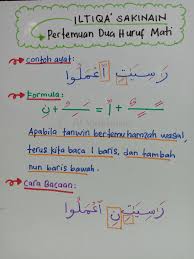 ILTIQA' SAKINAIN
Pertemuan Dua Huruf Mati
Contoh ayat:
رَسِيَتٍ ٱعْمَلُوا
Formula:
Apabila tanwin bertemu hamzah wasal,
terus kita baca 1 baris, dan tambah
nun baris bawah.
Cara Bacaan:
رَسِيَتِ نِ ٱعْمَلُوا